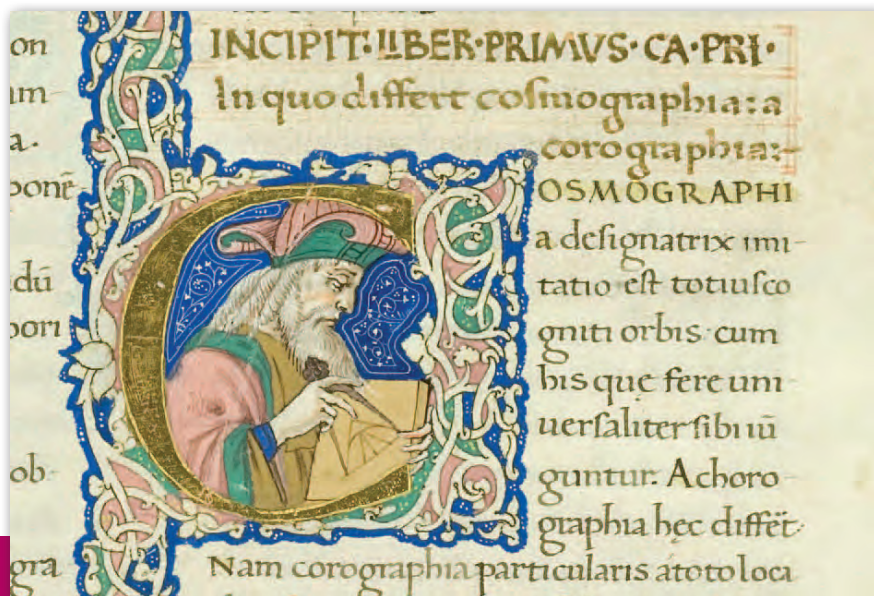 on
a.
ponē-
dū
pori
ob-
gra
INCIPIT·LIBER·PRIMVS·CA·PRI·
In quo differt coſmographia: a
corographia:-
COSMOGRAPHI
a deſignatrix imi-
tatio eſt totiuſco
gniti orbis· cum
his quę fere uni-
uerſaliter ſibi iū
guntur. A choro-
graphia hęc differt·
Nam corographia particularis átoto loca